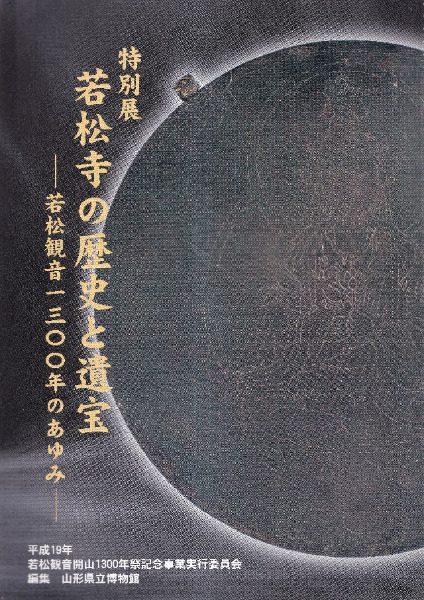 特別展
若松寺の歴史と遺宝
――若松観音一三〇〇年のあゆみ――
平成19年
若松観音開山1300年祭記念事業実行委員会
編集　山形県立博物館